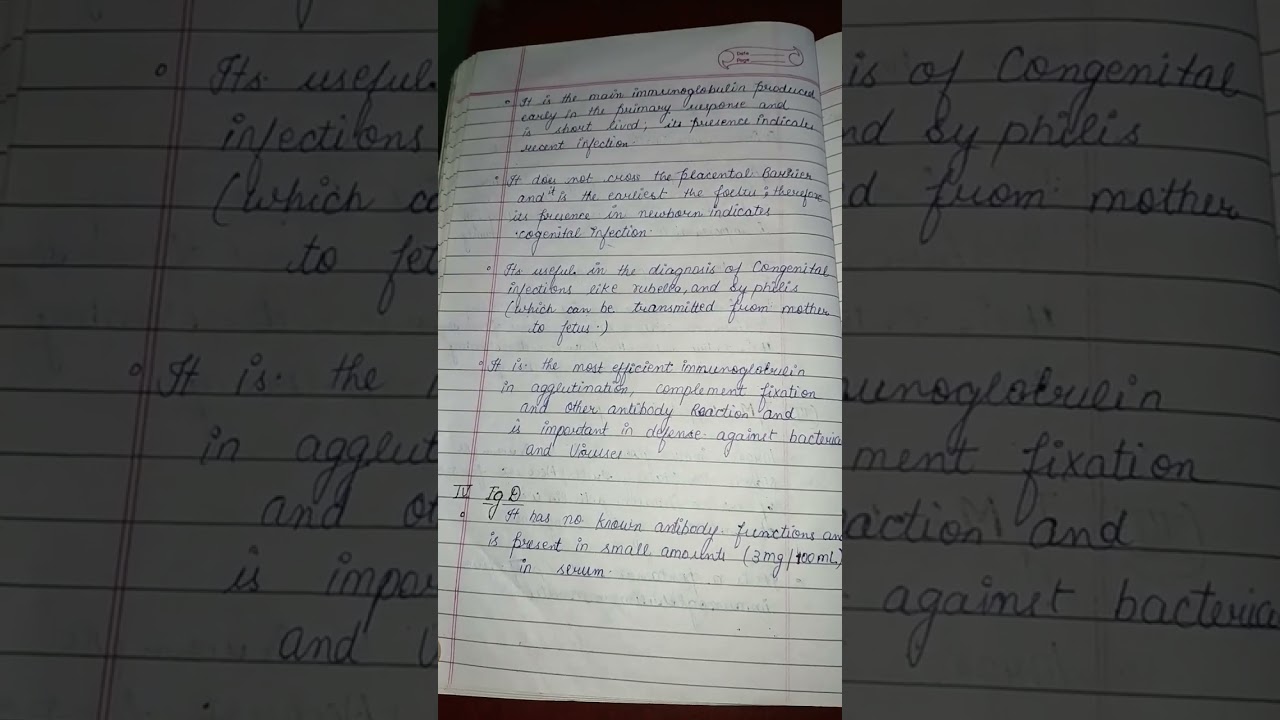 Date
Page
• It is the main immunoglobulin produced
early in the primary response and
is short lived; its presence indicates
recent infection.
• It does not cross the placental Barrier
and it is the earliest the foetus; therefore
its presence in newborn indicates
cogenital infection.
• Its useful in the diagnosis of Congenital
infections like rubella, and Syphilis
(which can be transmitted from mother
to fetus.)
• It is the most efficient immunoglobulin
in agglutination, complement fixation
and other antibody Reaction and
is important in defense against bacteria
and
IV IgD
• It has no known antibody functions and
is present in small amounts (3mg/100mL)
in serum.